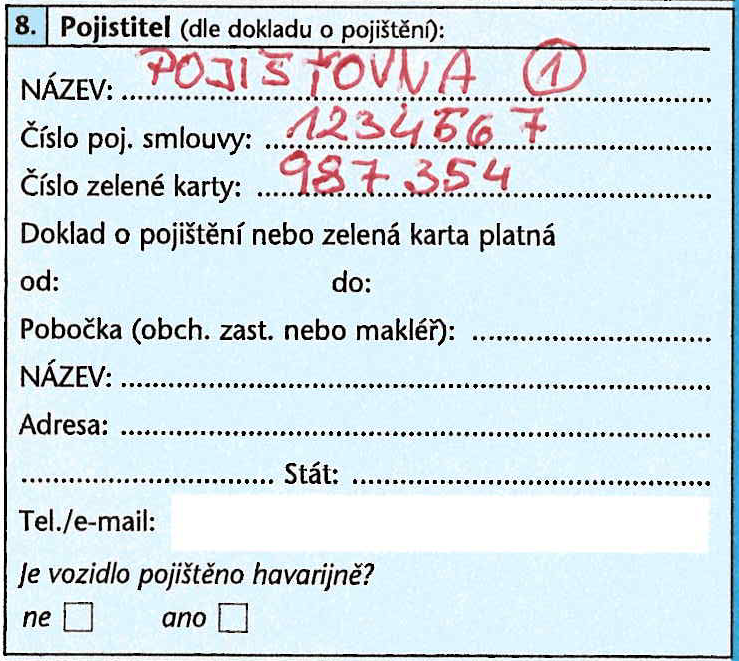 8. Pojistitel (dle dokladu o pojištění):
NÁZEV: POJIŠŤOVNA 1
Číslo poj. smlouvy: 1234567
Číslo zelené karty: 987 354
Doklad o pojištění nebo zelená karta platná
od: do:
Pobočka (obch. zast. nebo makléř):
NÁZEV:
Adresa:
Stát:
Tel./e-mail:
Je vozidlo pojištěno havarijně?
ne ano